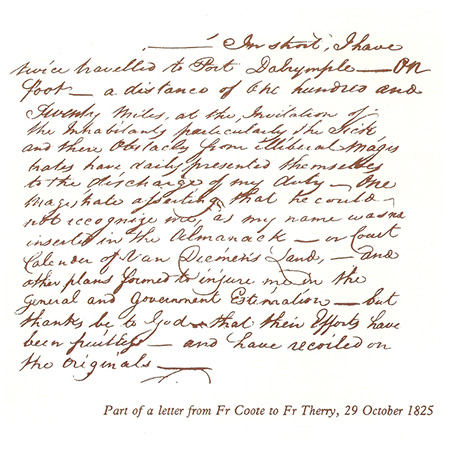 ——— In short, I have
twice travelled to Port Dalrymple — On
foot — a distance of One hundred and
Twenty Miles, at the Invitation of
the Inhabitants particularly the Sick
and there Obstacles from illiberal Magis
trates have daily presented themselves
to the discharge of my duty — One
Magistrate asserting that he could
not recognize me, as my name was no
inserted in the Almanack — or Court
Calender of Van Diemen's Land, — and
other plans formed to injure me in the
General and Government Estimation — but
thanks be to God — that their Efforts have
been fruitless — and have recoiled on
the Originals —
Part of a letter from Fr Coote to Fr Therry, 29 October 1825